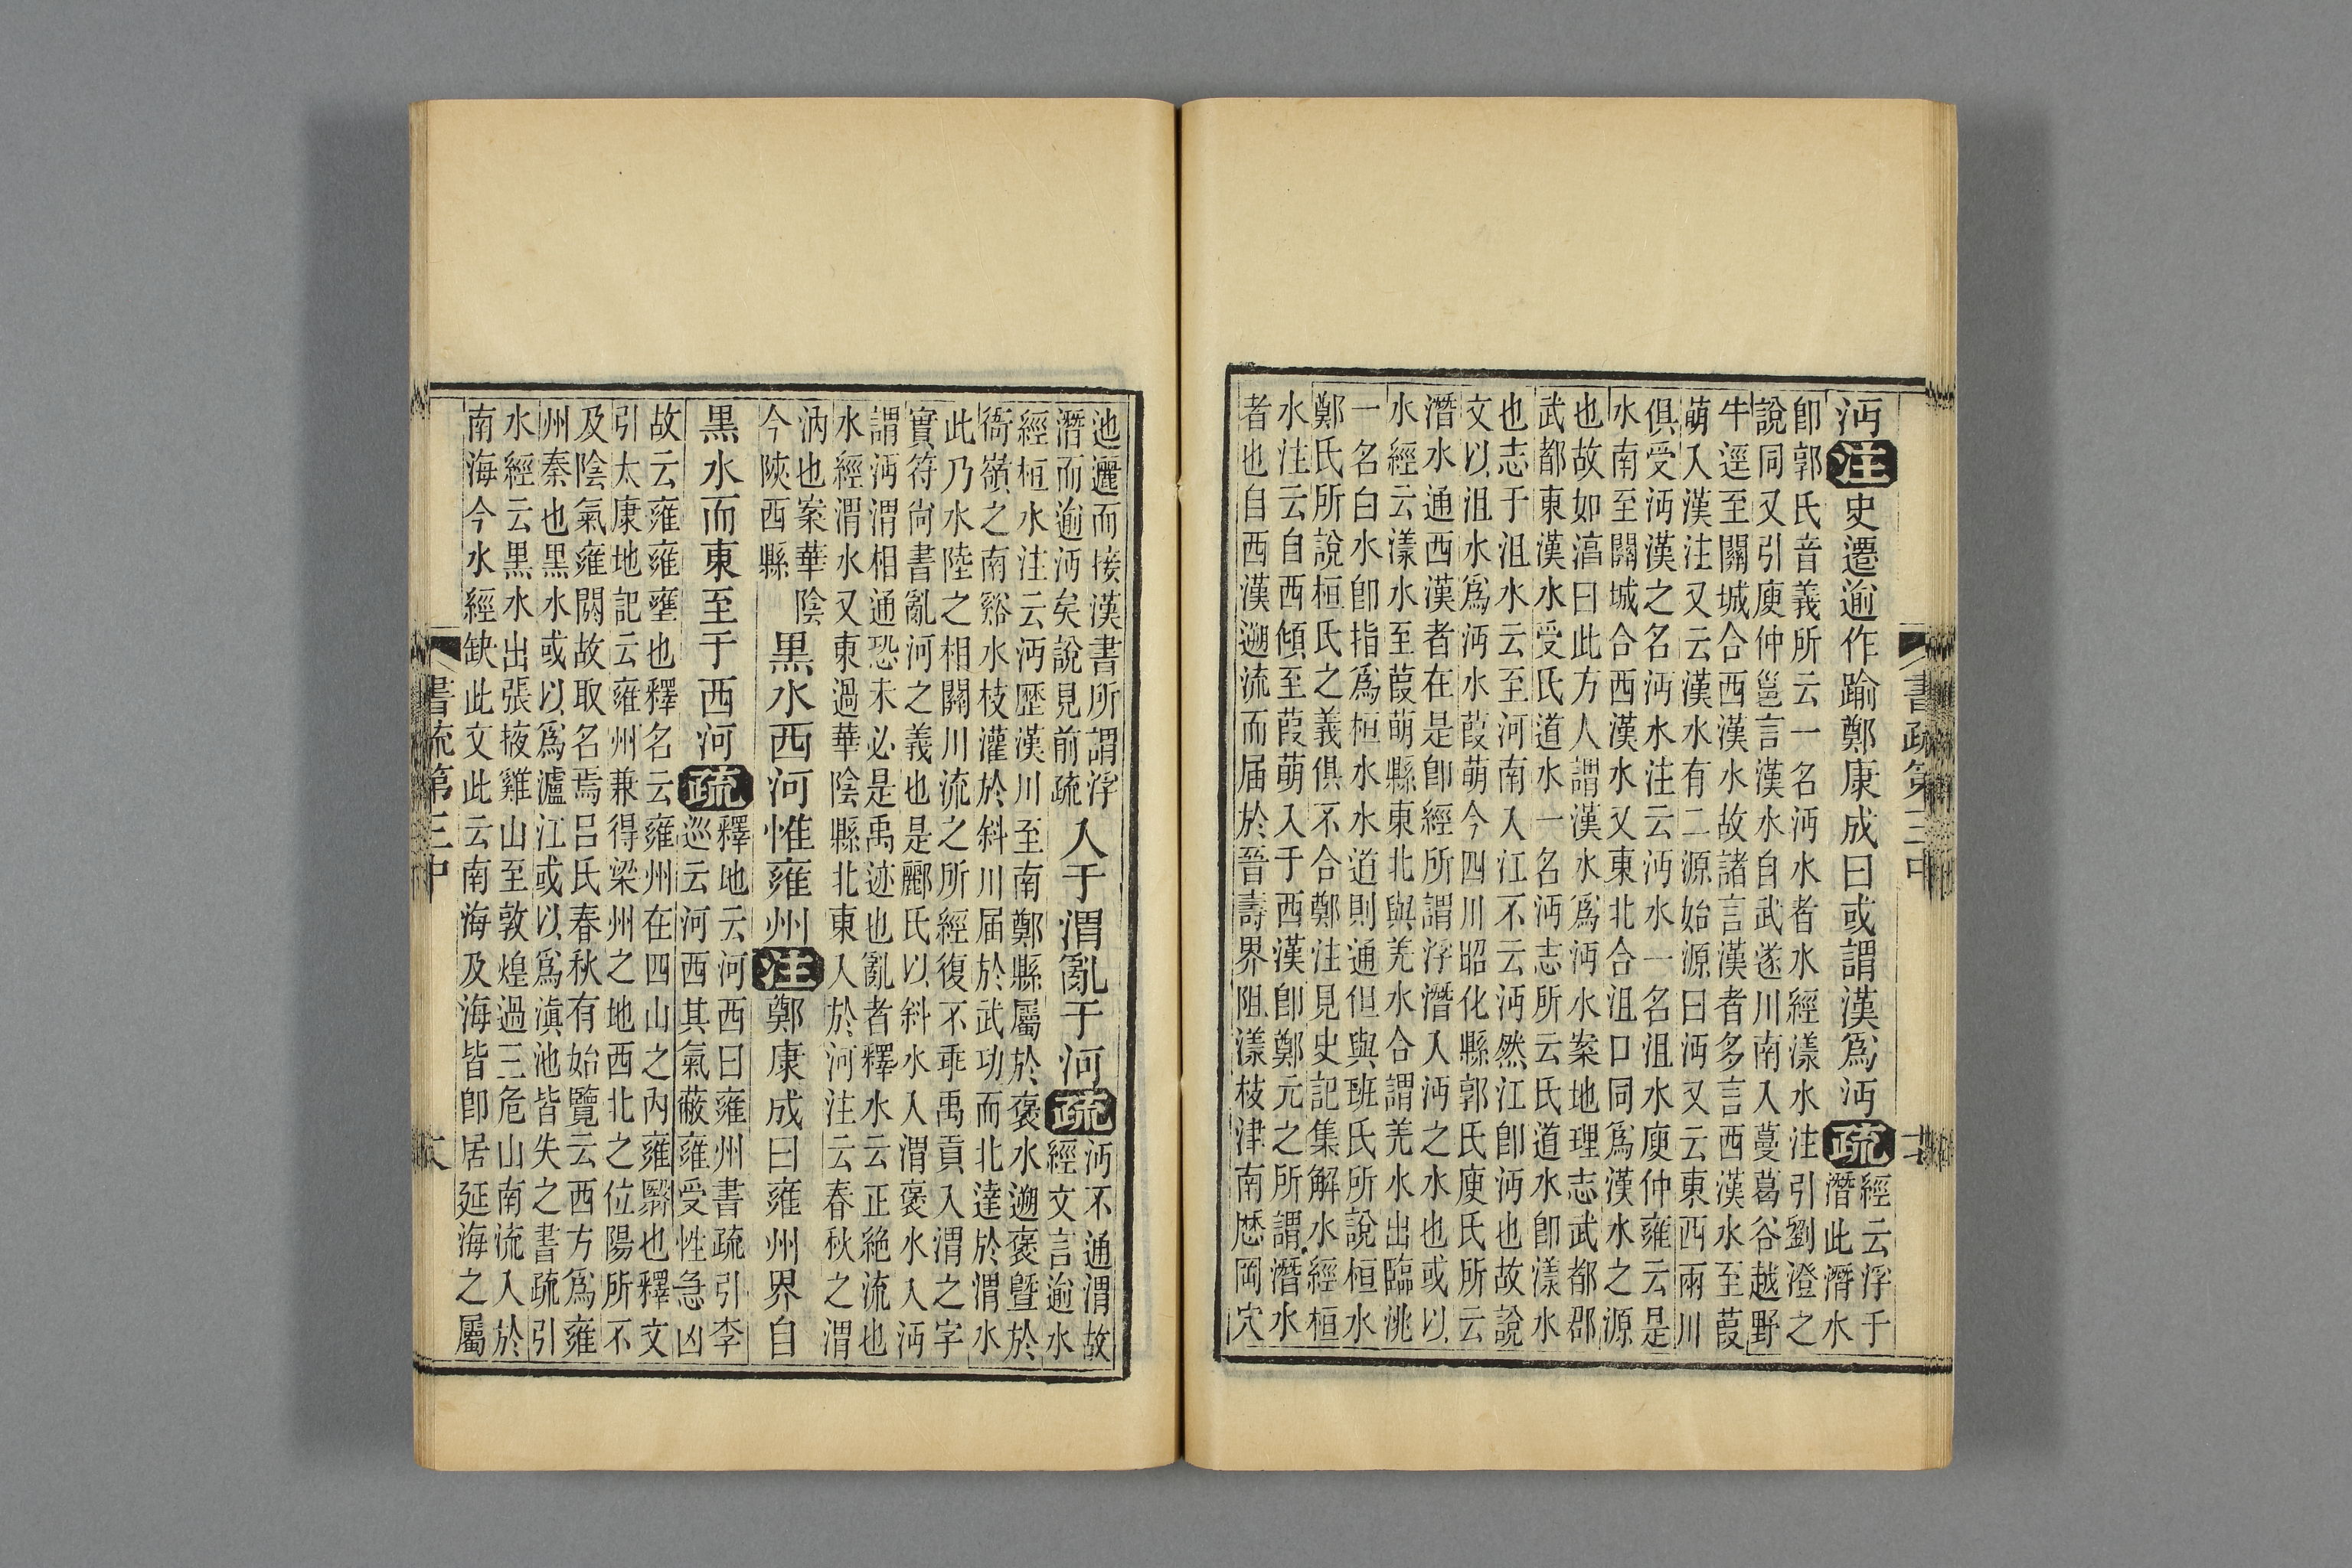 沔注史遷逾作踰鄭康成曰或謂漢爲沔疏經云浮于
潛此潛水
卽郭氏音義所云一名沔水者水經漾水注引劉澄之
說同又引庾仲邕言漢水自武遂川南入蔓葛谷越野
牛逕至關城合西漢水故諸言漢者多言西漢水至葭
萌入漢注又云漢水有二源始源曰沔又云東西兩川
俱受沔漢之名沔水注云沔水一名沮水庾仲雍云是
水南至關城合西漢水又東北合沮口同爲漢水之源
也故如滀曰此方人謂漢水爲沔水案地理志武都郡
武都東漢水受氐道水一名沔志所云氐道水卽漾水
也志于沮水云至河南入江不云沔然江卽沔也故說
文以沮水爲沔水葭萌今四川昭化縣郭氏庾氏所云
潛水通西漢者在是卽經所謂浮潛入沔之水也或以
水經云漾水至葭萌縣東北與羌水合謂羌水出臨洮
一名白水卽指爲桓水水道則通但與班氏所說桓水
鄭氏所說桓氏之義俱不合鄭注見史記集解水經桓
水注云自西傾至葭萌入于西漢卽鄭元之所謂潛水
者也自西漢遡流而屆於晉壽界阻漾枝津南歷岡穴
書疏第三中
池邐而接漢書所謂浮
潛而逾沔矣說見前疏
入于渭亂于河疏沔不通渭故
經文言逾水
經桓水注云沔歷漢川至南鄭縣屬於褒水遡褒暨於
衙嶺之南谿水枝灌於斜川屆於武功而北達於渭水
此乃水陸之相關川流之所經復不乖禹貢入渭之字
實符尙書亂河之義也是酈氏以斜水入渭褒水入沔
謂沔渭相通恐未必是禹迹也亂者釋水云正絶流也
水經渭水又東過華陰縣北東入於河注云春秋之渭
汭也案華陰
今陝西縣
黑水西河惟雍州注鄭康成曰雍州界自
黑水而東至于西河疏釋地云河西曰雍州書疏引李
巡云河西其氣蔽雍受性急凶
故云雍雍壅也釋名云雍州在四山之內雍翳也釋文
引太康地記云雍州兼得梁州之地西北之位陽所不
及陰氣雍閼故取名焉呂氏春秋有始覽云西方爲雍
州秦也黑水或以爲瀘江或以爲滇池皆失之書疏引
水經云黑水出張掖雞山至敦煌過三危山南流入於
南海今水經缺此文此云南海及海皆卽居延海之屬
書疏第三中